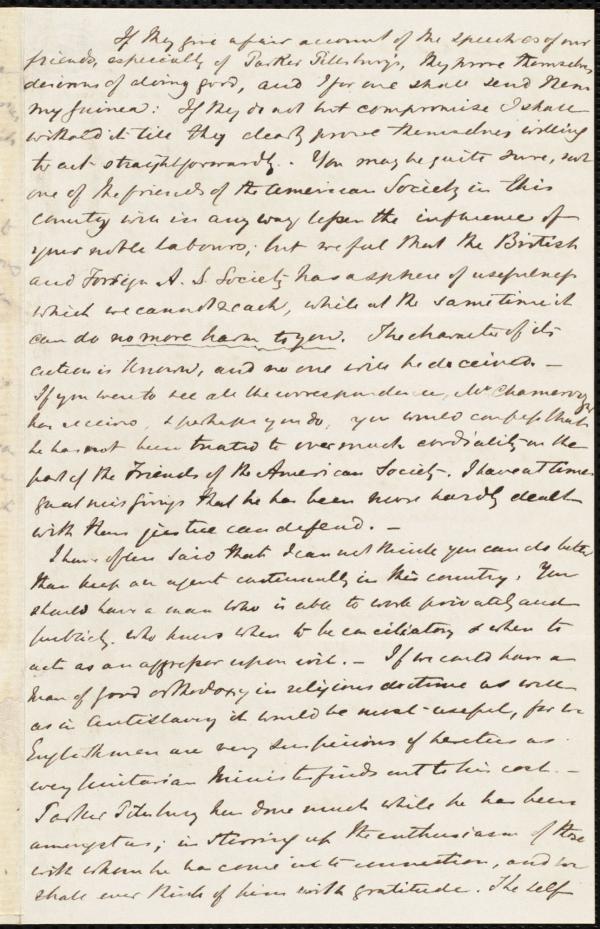 If they give a fair account of the speeches of our
friends, especially of Parker Pillsbury's, they prove themselves
desirous of doing good, and I for one shall send them
my Guinea: If they do not but compromise I shall
withold it till they clearly prove themselves willing
to act straightforwardly. . You may be quite sure, not
one of the friends of the American Society in this
country will in any way lessen the influence of
your noble labours; but we feel that the British
and Foreign A. S. Society has a sphere of usefulness
which we cannot reach, while at the same time it
can do no more harm to you. The character of its
action is known, and no one will be deceived. —
If you were to see all the correspondence, Mr Chamerovzow
has received, & perhaps you do, you would confess that
he has not been treated to over much cordiality on the
part of the Friends of the American Society. I have at times
great misgivings that he has been more hardly dealt
with than justice can defend. —
I have often said that I can not think you can do better
than keep an agent continually in this country. You
should have a man who is able to work privately and
publicly. who knows when to be conciliatory & when to
act as an aggressor upon evil. — If we could have a
man of good orthodoxy in religious doctrine as well
as in Antislavery it would be most useful, for we
Englishmen are very suspicious of heretics as
every Unitarian Minister finds out to his cost. —
Parker Pillsbury has done much while he has been
amongst us; in stirring up the enthusiasm of those
with whom he has come into connection, and we
shall ever think of him with gratitude. The self